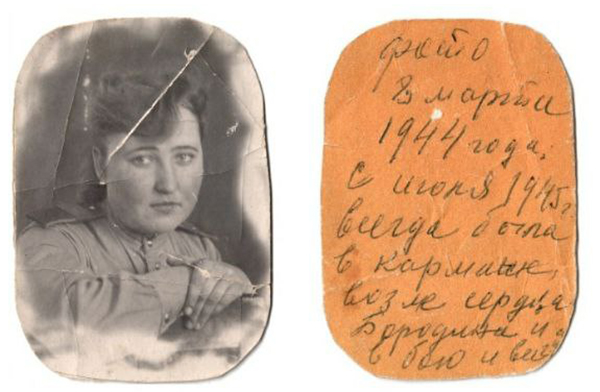 фото
8 марта
1944 года,
с июня 1945г
всегда была
в кармане,
возле сердца
Бородина и
в бою и